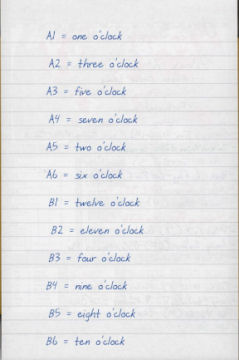 A1 = one o'clock
A2 = three o'clock
A3 = five o'clock
A4 = seven o'clock
A5 = two o'clock
A6 = six o'clock
B1 = twelve o'clock
B2 = eleven o'clock
B3 = four o'clock
B4 = nine o'clock
B5 = eight o'clock
B6 = ten o'clock